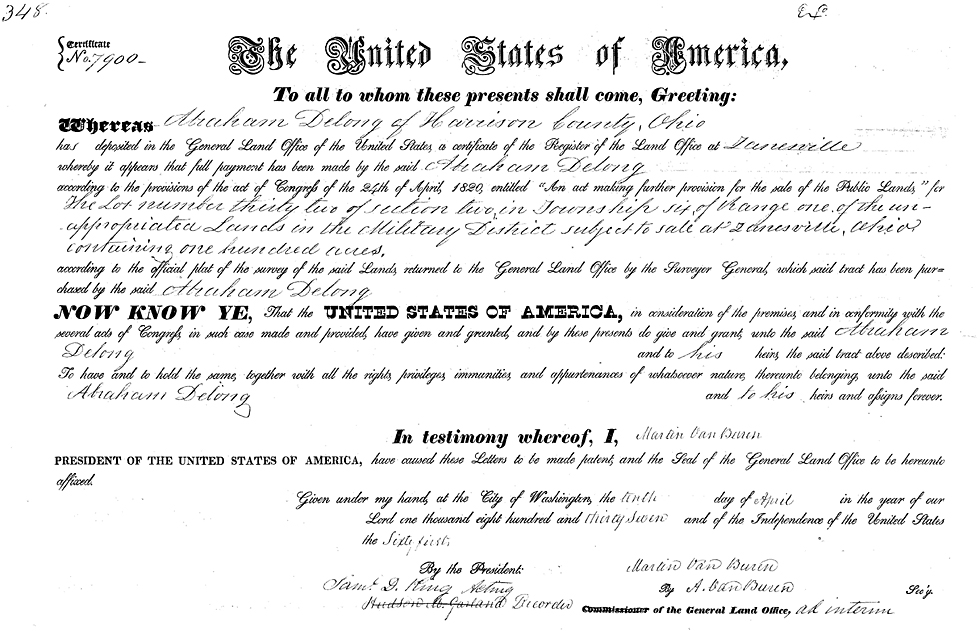 348.
Certificate
No. 7900-
The United States of America,
To all to whom these presents shall come, Greeting:
Whereas Abraham Delong of Harrison County, Ohio
has deposited in the General Land Office of the United States, a certificate of the Register of the Land Office at Zanesville
whereby it appears that full payment has been made by the said Abraham Delong
according to the provisions of the act of Congress of the 24th of April, 1820, entitled "An act making further provision for the sale of the Public Lands," for
the Lot number thirty two of section two, in Township six, of Range one, of the un-
appropriated Lands in the Military District subject to sale at Zanesville, Ohio,
containing one hundred acres,
according to the official plat of the survey of the said Lands, returned to the General Land Office by the Surveyor General, which said tract has been pur-
chased by the said Abraham Delong
NOW KNOW YE, That the UNITED STATES OF AMERICA, in consideration of the premises, and in conformity with the
several acts of Congress, in such case made and provided, have given and granted, and by these presents do give and grant, unto the said Abraham
Delong and to his heirs, the said tract above described:
To have and to hold the same, together with all the rights, privileges, immunities, and appurtenances of whatsoever nature, thereunto belonging, unto the said
Abraham Delong and to his heirs and assigns forever.
In testimony whereof, I, Martin Van Buren
PRESIDENT OF THE UNITED STATES OF AMERICA, have caused these Letters to be made patent, and the Seal of the General Land Office to be hereunto
affixed.
Given under my hand, at the City of Washington, the tenth day of April in the year of our
Lord one thousand eight hundred and thirty seven and of the Independence of the United States
the Sixty first.
By the President: Martin Van Buren
By A. Van Buren Sec'y.
Saml. D. King Acting
Hudson M. Garland Recorder Commissioner of the General Land Office, ad interim